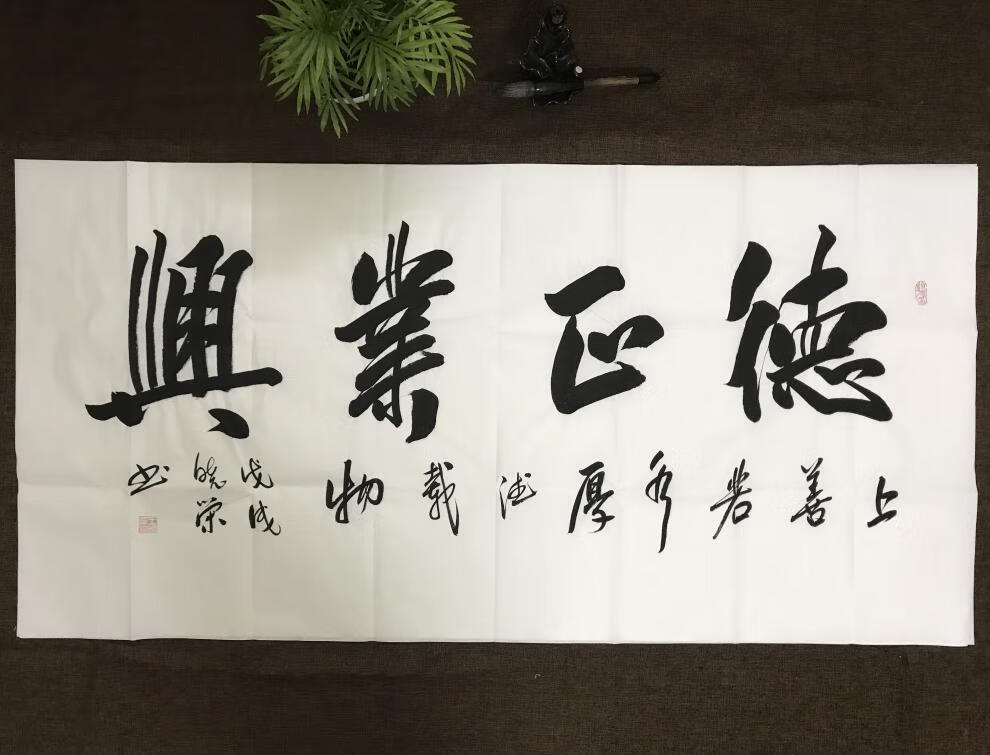 德正業興
上善若水厚德載物
戊戌
曉榮
书